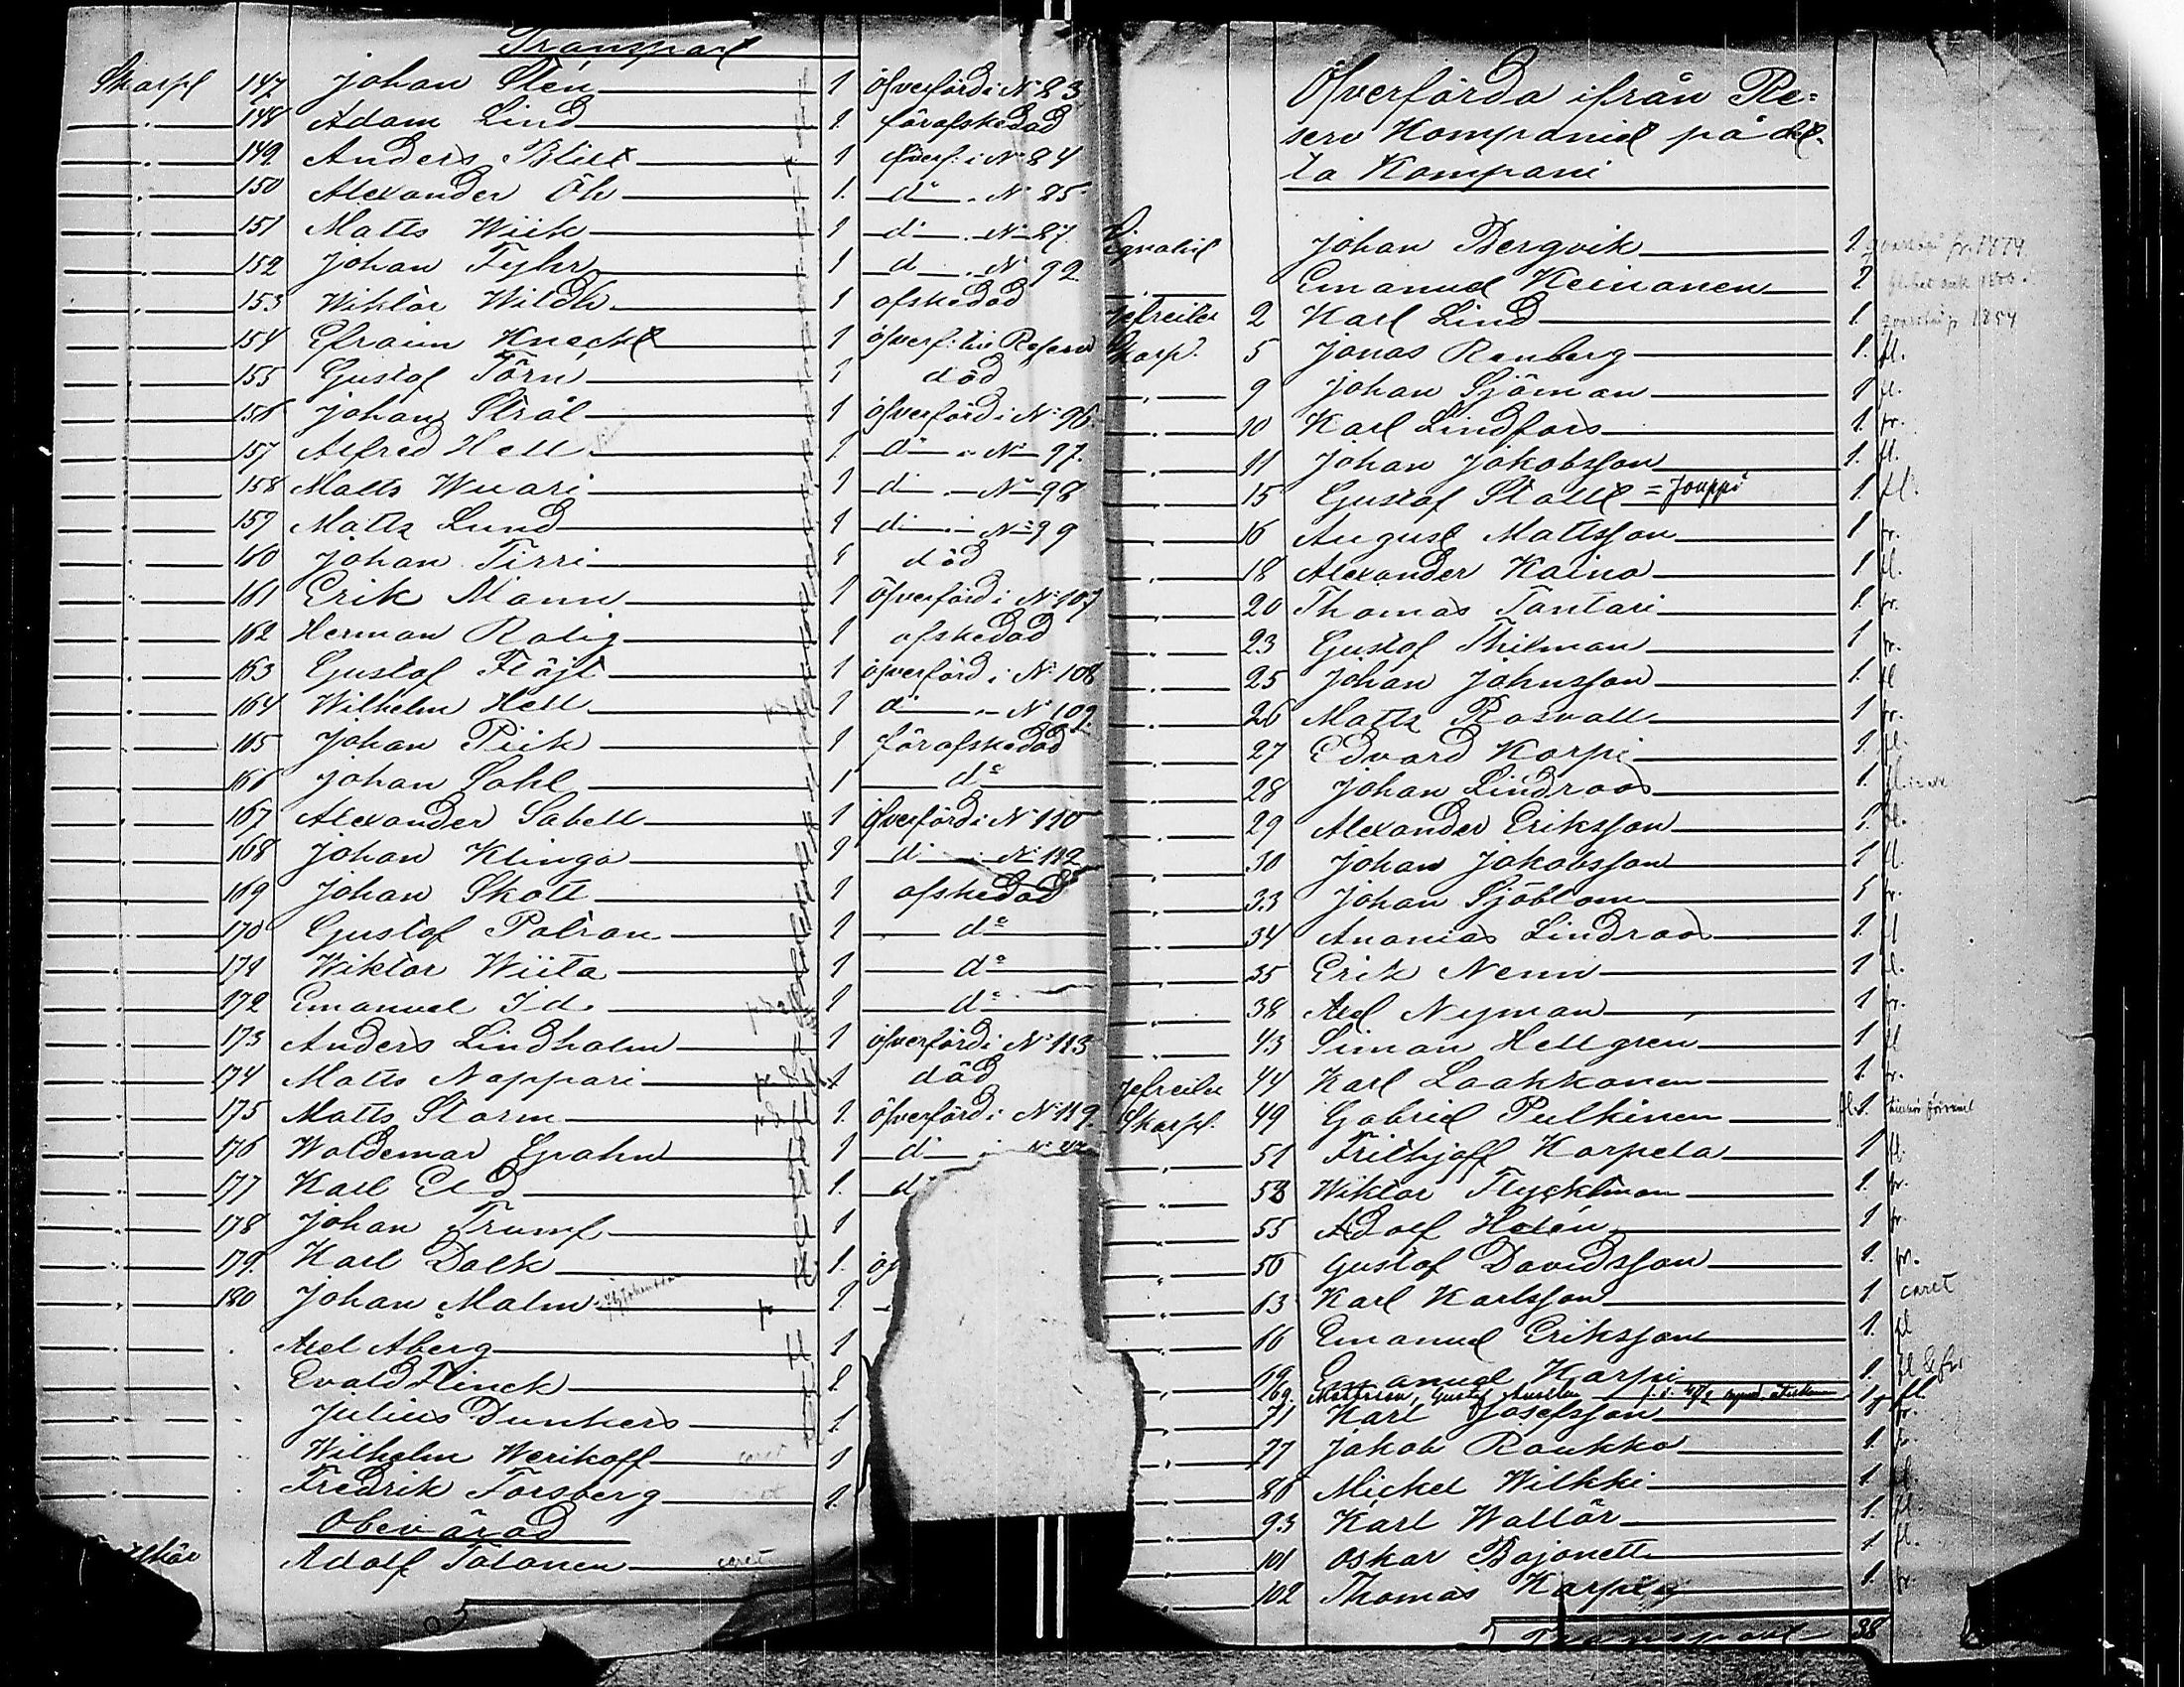 Transport
Skarpl 147 Johan Stén 1 öfverförd i N° 83
" 148 Adam Lind 1. förafskedad
" 149 Anders Blixt 1 öfverf: i N° 84
" 150 Alexander Öh 1. d° " N° 85
" 151 Matts Wiik 1 d° " N° 87
" 152 Johan Fyhr 1 d° " N° 92
" 153 Wiktor Wildh 1 afskedad
" 154 Efraim Knecht 1 öfverf: till Reserv
" 155 Gustaf Törn 1 död
" 156 Johan Stråt 1 öfverförd i N° 96
" 157 Alfred Hell 1 d° " N° 97.
" 158 Matts Wuari 1 d° " N° 98
" 159 Matts Lund 1 d° " N° 99
" 160 Johan Tirri 1 död
" 161 Erik Mann 1 öfverförd i N° 107
" 162 Herman Ratig 1 afskedad
" 163 Gustaf Flöjt 1 öfverförd i N° 108
" 164 Wilhelm Hell 1 d° " N° 109
" 165 Johan Piik 1 förafskedad
" 166 Johan Sahl 1 d°
" 167 Alexander Sabell 1 öfverförd i N° 110
" 168 Johan Klinga 1 d° " N° 112
" 169 Johan Skott 1 afskedad
" 170 Gustaf Patron 1 d°
" 171 Wiktor Wiita 1 d°
" 172 Emanuel Id 1 d°
" 173 Anders Lindholm 1 öfverförd i N° 113
" 174 Matts Nappari 1 död
" 175 Matts Storm 1. öfverförd i N° 119.
" 176 Woldemar Grahn 1 d°
" 177 Karl Eld 1. d°
" 178 Johan Trumf 1
" 179. Karl Dolk 1. öf
" 180 Johan Malm 1.
" Axel Åberg 1
" Evald Flinck 1
" Julius Dunkers 1.
" Wilhelm Werikoff caret 1
" Fredrik Forsberg caret 1.
Obeväрad
Adolf Tolonen caret
Öfverförda ifrån Re=
serv Kompaniet på det=
ta Kompani
Signalist Johan Bergvik 1.
" Emanuel Keinanen 1
Jefreiter 2 Karl Lind 1.
Skarpl. 5 Jonas Renberg 1. fl.
" 9 Johan Sjöman 1 fl.
" 10 Karl Lindfors 1. fr.
" 11 Johan Jakobsson 1. fl.
" 15 Gustaf Ståhl = Jouppi 1 fl.
" 16 August Mattsson 1 fr.
" 18 Alexander Kaino 1 fl.
" 20 Thomas Tantari 1. fr.
" 23 Gustaf Thilman 1 fr.
" 25 Johan Johnsson 1. fl
" 26 Matts Rosvall 1 fr.
" 27 Edvard Korpi 1. fl.
" 28 Johan Lindroos 1.
" 29 Alexander Eriksson 1. fl.
" 30 Johan Jakobsson 1 fl.
" 33 Johan Sjöblom 1 fr.
" 34 Ananias Lindroos 1. fl
" 35 Erik Nenn 1 fl.
" 38 Axel Nyman 1 fr.
" 43 Simon Hellgren 1 fl
Jefreiter 44 Karl Laakkonen 1. fr.
Skarpl. 49 Gabriel Pulkinen fl. 1.
" 51 Frithjoff Korpela 1 fl.
" 53 Wiktor Flycktman 1. fr.
" 55 Adolf Holén 1 fr.
" 56 Gustaf Davidsson 1. fr.
" 63 Karl Karlsson 1 caret
" 66 Emanuel Eriksson 1. fl
" 69 Emanuel Karpi 1. fl
Gustaf Aurelius 1 fl.
" 71 Karl Josefsson 1 fr.
" 77 Jakob Raukko 1. fr
" 86 Mickel Wilkki 1 fl.
" 93 Karl Wallör 1. fl.
" 101 Oskar Bajonett 1 fl.
" 102 Thomas Karpig 1. fr.
Transport 38